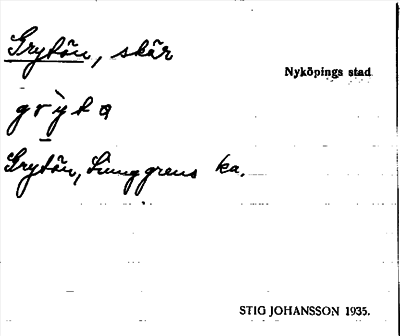 Grytön, skär
Nyköpings stad
grỳta
Grytön, Ljunggrens ka.
STIG JOHANSSON 1935.